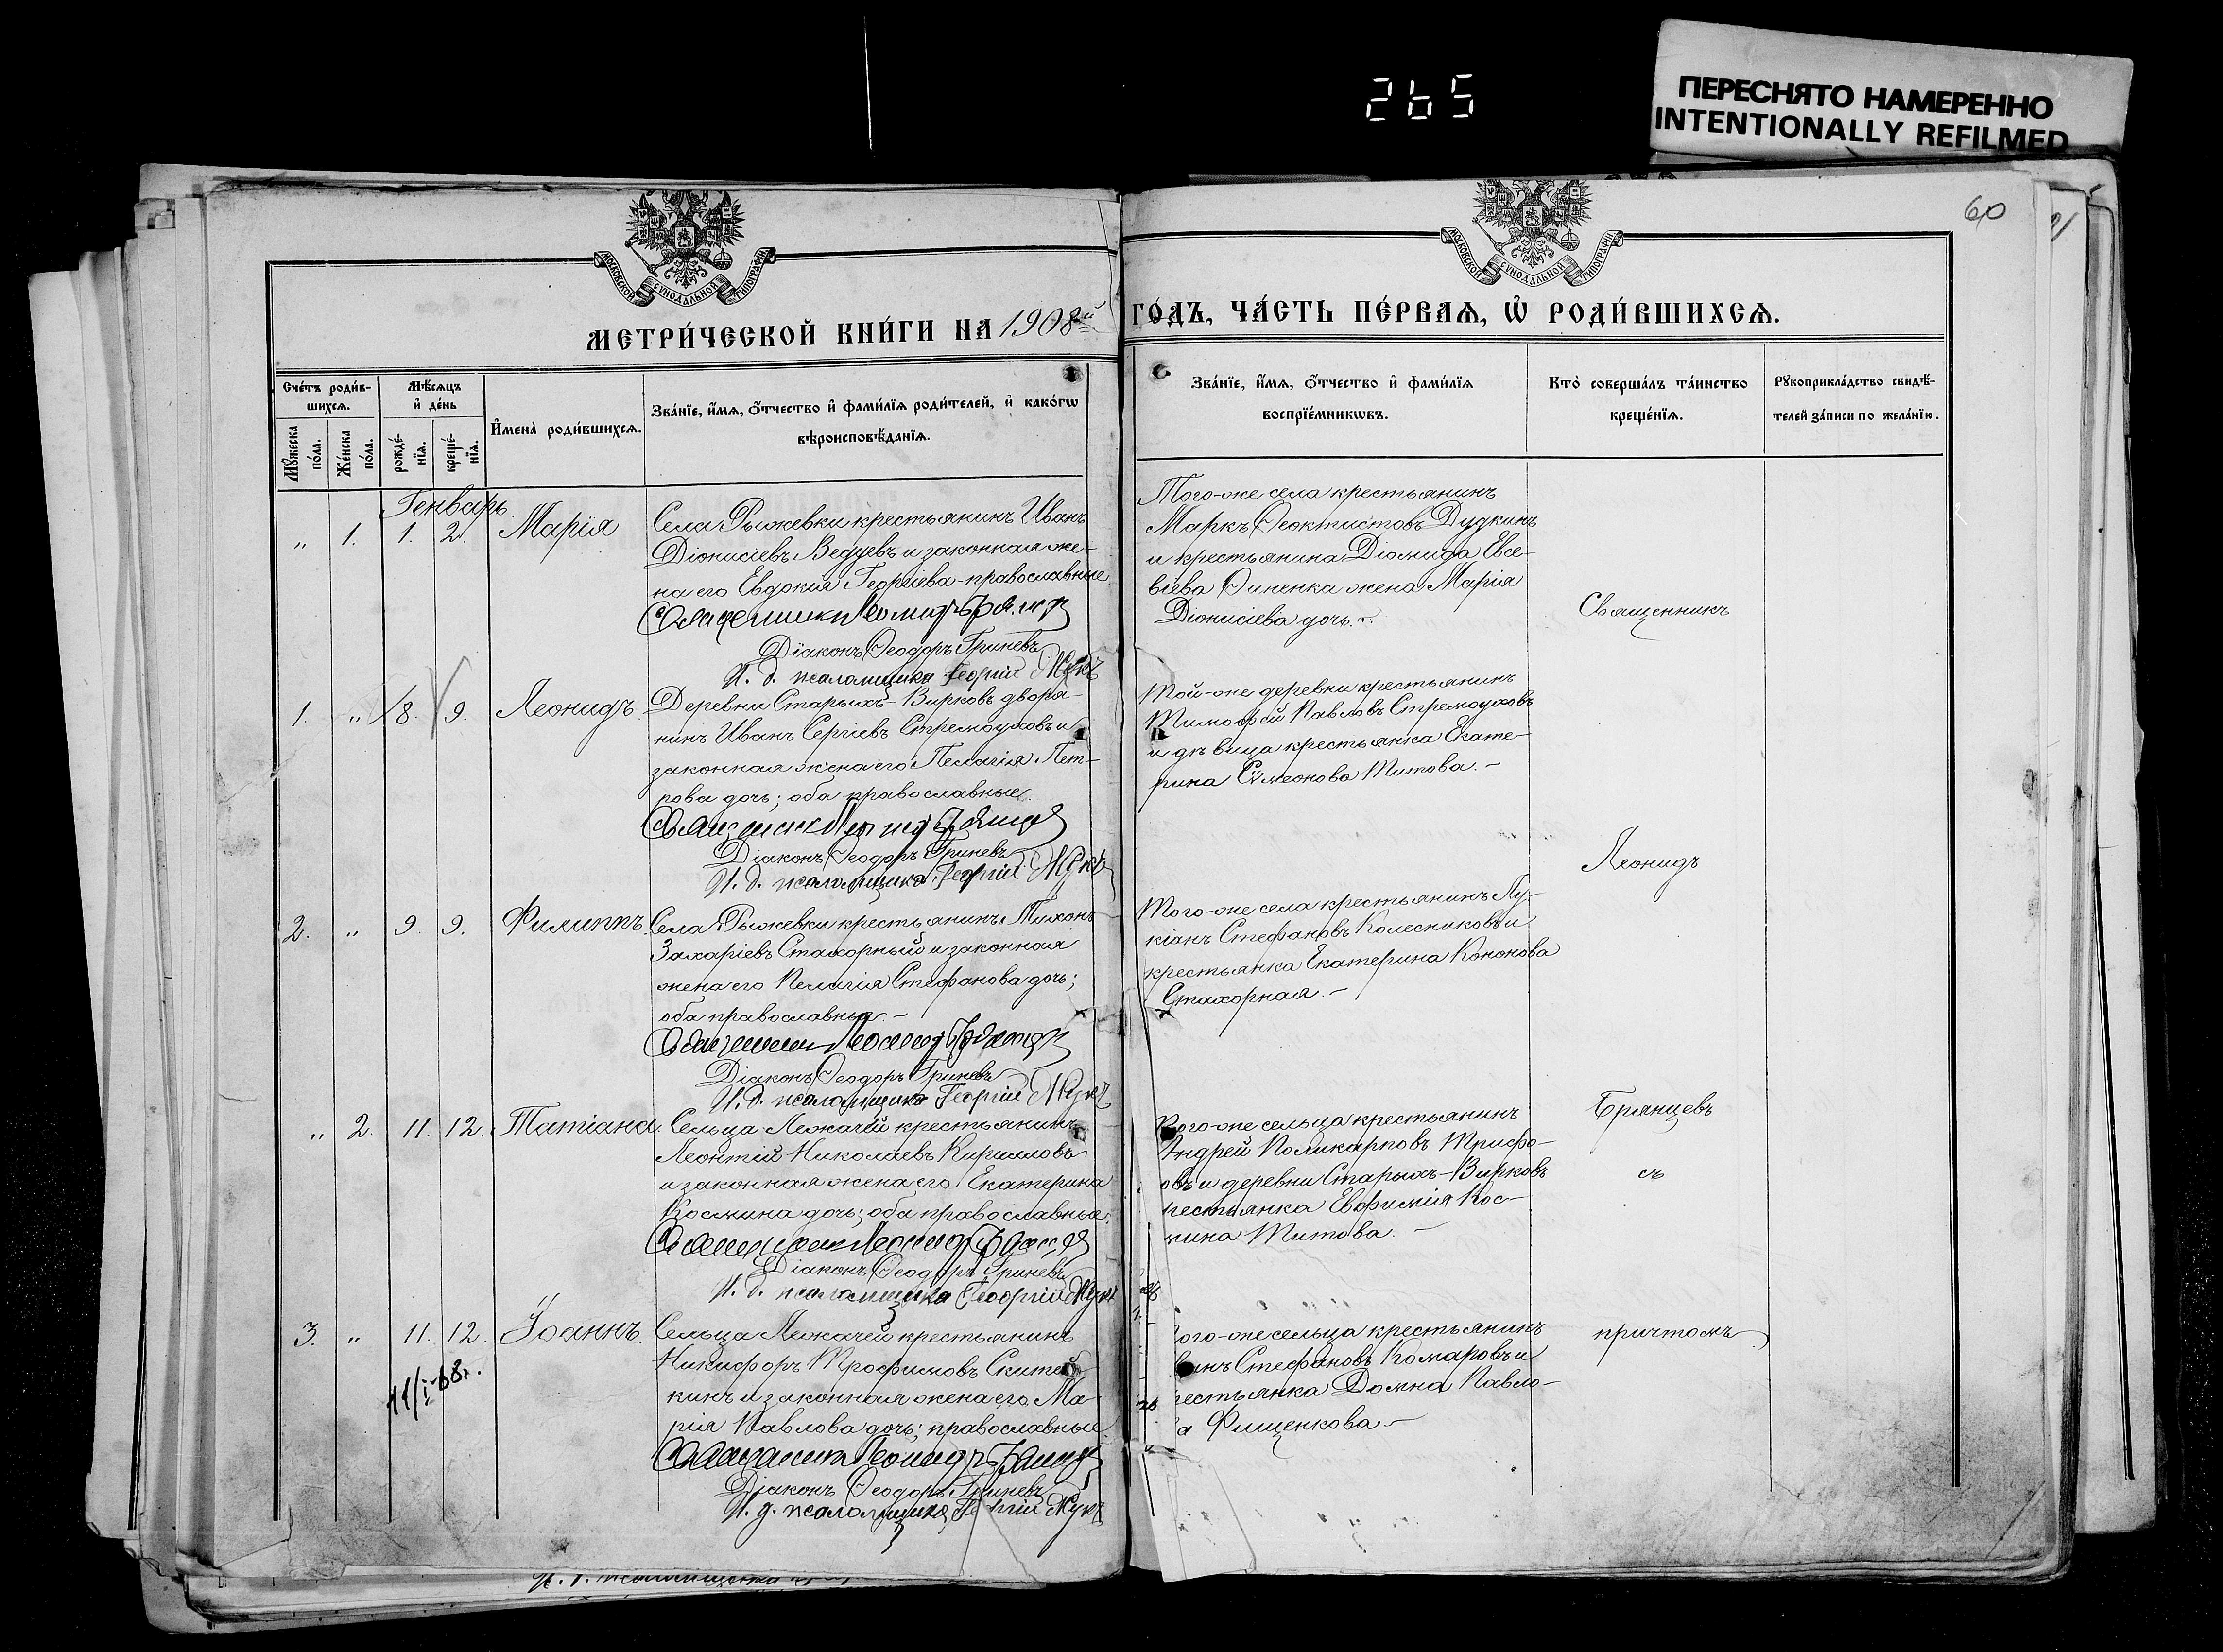 265
ПЕРЕСНЯТО НАМЕРЕННО
INTENTIONALLY REFILMED
60
МОСКОВСКОЙ СѴНОДАЛЬНОЙ ТИПОГРАФІИ
МОСКОВСКОЙ СѴНОДАЛЬНОЙ ТИПОГРАФІИ
МЕТРИ́ЧЕСКОЙ КНИ́ГИ НА 1908й
ГО́ДЪ, ЧА́СТЬ ПЕ́РВАѦ, Ѡ҆ РОДИ́ВШИХСѦ.
Сче́тъ роди́в-
шихсѧ.
Мꙋ́жеска
по́ла.
Же́нска
по́ла.
Мѣ́сѧцъ
и҆ де́нь
рожде́-
нїѧ.
креще́-
нїѧ.
И҆мена̀ роди́вшихсѧ.
Зва́нїе, и҆́мѧ, ѻ҆́тчество и҆ фами́лїѧ роди́телей, и҆ како́гѡ
вѣроисповѣ́данїѧ.
Зва́нїе, и҆́мѧ, ѻ҆́тчество и҆ фами́лїѧ
воспрїе́мникѡвъ.
Кто̀ соверша́лъ та́инство
креще́нїѧ.
Рꙋкоприкла́дство свидѣ́-
телей за́писи по жела́нїю.
Генварь
„ 1. 1. 2. Марія
Села Рыжевки крестьянинъ Иванъ
Діонисіевъ Ведуевъ и законная же-
на его Евдокія Георгіева - православные.
Священникъ Леонидъ Брянцевъ
Діаконъ Ѳеодоръ Гриневъ
И. д. псаломщика Георгій Жукъ
Того-же села крестьянинъ
Маркъ Ѳеоктистовъ Дудкинъ
и крестьянина Діомида Евсе-
віева Финенка жена Марія
Діонисіева дочь.
Священникъ
1. „ 8. 9. Леонидъ
Деревни Старыхъ-Вирковъ дворя-
нинъ Иванъ Сергіевъ Стремоуховъ и
законная жена его Пелагія Пет-
рова дочь; оба православные.
Священникъ Леонидъ Брянцевъ
Діаконъ Ѳеодоръ Гриневъ
И. д. псаломщика Георгій Жукъ
Той-же деревни крестьянинъ
Тимофей Павловъ Стремоуховъ
и дѣвица крестьянка Екате-
рина Сѵмеонова Титова. -
Леонидъ
2. „ 9. 9. Филиппъ.
Села Рыжевки крестьянинъ Тихонъ
Захаріевъ Стахорный и законная
жена его Пелагія Стефанова дочь;
оба православные. -
Священникъ Леонидъ Брянцевъ
Діаконъ Ѳеодоръ Гриневъ
И. д. псаломщика Георгій Жукъ
Того-же села крестьянинъ Лу-
кіанъ Стефановъ Колесниковъ и
крестьянка Екатерина Кононова
Стахорная. -
Брянцевъ
„ 2. 11. 12. Татіана.
Сельца Лежачей крестьянинъ
Леонтій Николаевъ Кирилловъ
и законная жена его Екатерина
Космина дочь; оба православные.
Священникъ Леонидъ Брянцевъ
Діаконъ Ѳеодоръ Гриневъ
И. д. псаломщика Георгій Жукъ
Того-же сельца крестьянинъ
Андрей Поликарповъ Трифо-
овъ и деревни Старыхъ-Вирковъ
рестьянка Евфимія Кос-
мина Титова. -
съ
3. „ 11. 12. Іоаннъ.
11/I-68г.
Сельца Лежачей крестьянинъ
Никифоръ Трофимовъ Скитей
кинъ и законная жена его Ма-
рія Павлова дочь; православные.
Священникъ Леонидъ Брянцевъ
Діаконъ Ѳеодоръ Гриневъ
И. д. псаломщика Георгій Жукъ
ого-же сельца крестьянинъ
анъ Стефановъ Комаровъ и
рестьянка Домна Павло-
а Фищенкова. -
причтомъ